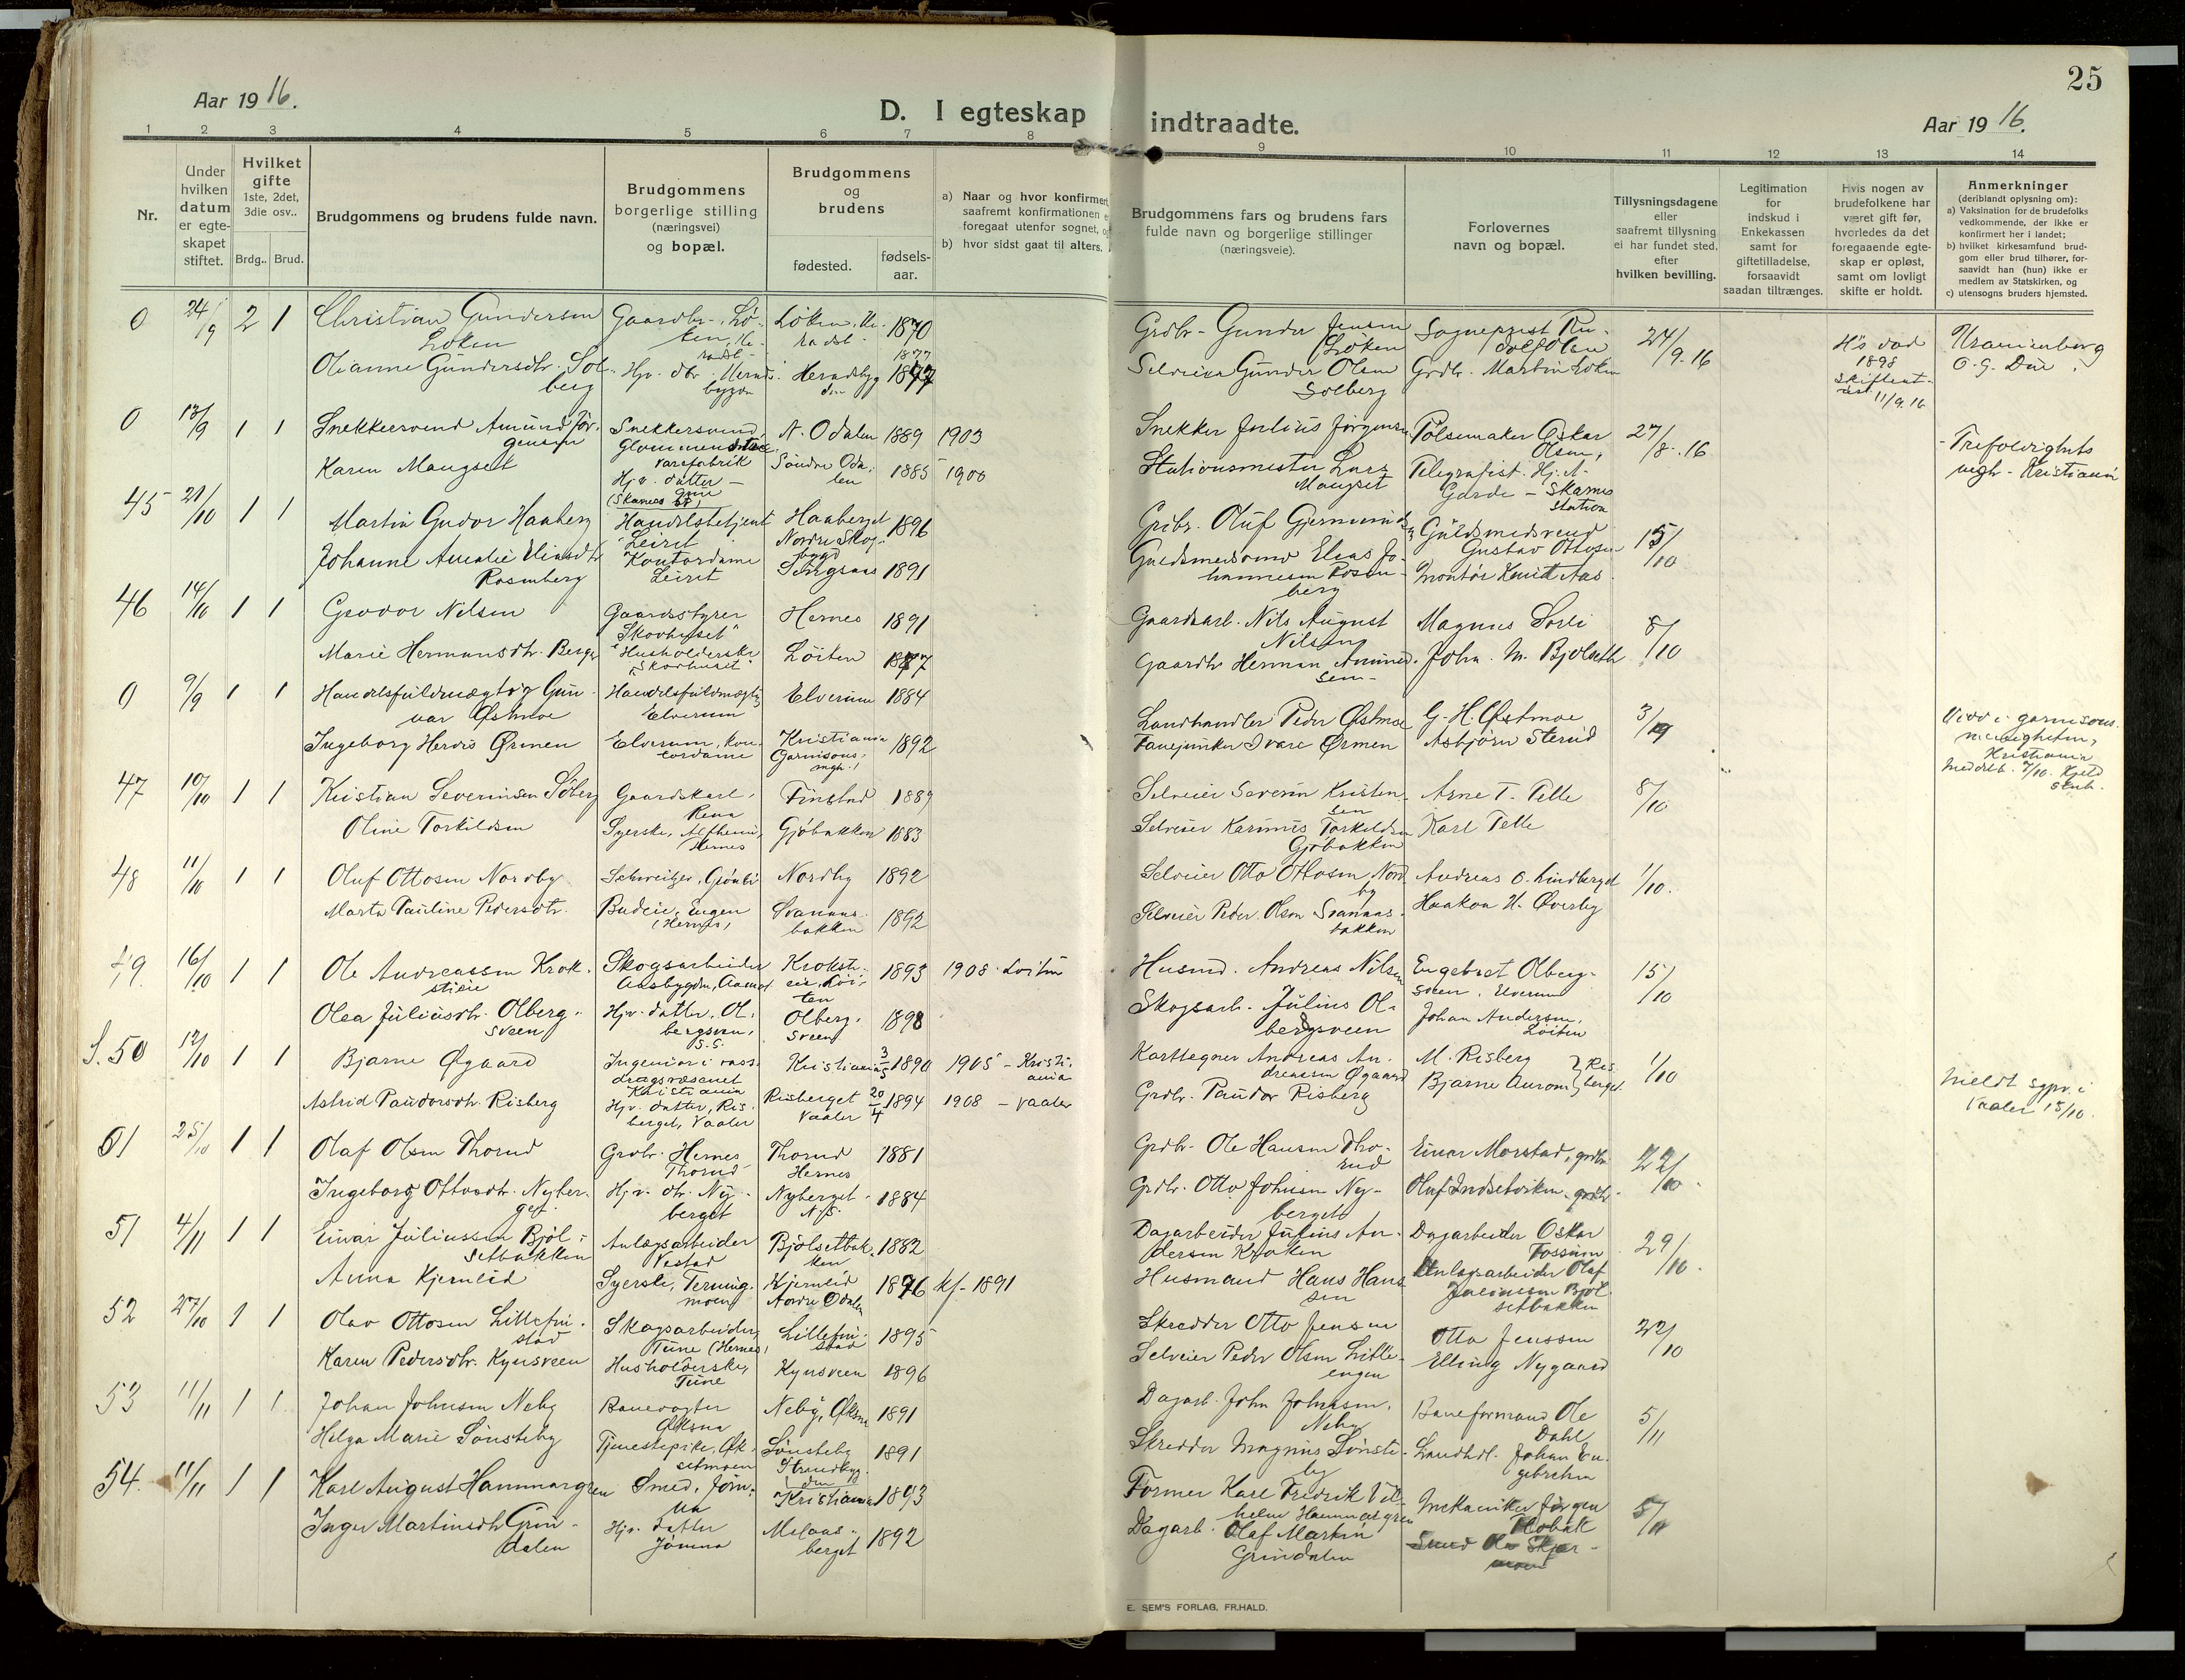 25
Aar 1916.
D. I egteskap indtraadte.
Aar 1916.
1 2 3 4 5 6 7 8 9 10 11 12 13 14
Nr.
Under hvilken datum er egte-skapet stiftet.
Hvilket gifte 1ste, 2det, 3die osv..
Brdg.. Brud.
Brudgommens og brudens fulde navn.
Brudgommens borgerlige stilling (næringsvei) og bopæl.
Brudgommens og brudens
fødested.
fødsels-aar.
a) Naar og hvor konfirmert
saafremt konfirmationen
foregaat utenfor sognet,
b) hvor sidst gaat til alters.
Brudgommens fars og brudens fars
fulde navn og borgerlige stillinger
(næringsveie).
Forlovernes
navn og bopæl.
Tillysningsdagene
eller
saafremt tillysning
ei har fundet sted,
efter
hvilken bevilling.
Legitimation
for
indskud i
Enkekassen
samt for
giftetilladelse,
forsaavidt
saadan tiltrænges.
Hvis nogen av
brudefolkene har
været gift før,
hvorledes da det
foregaaende egte-
skap er opløst,
samt om lovligt
skifte er holdt.
Anmerkninger
(deriblandt oplysning om):
a) Vaksination for de brudefolks
vedkommende, der ikke er
konfirmert her i landet;
b) hvilket kirkesamfund brud-
gom eller brud tilhører, for-
saavidt han (hun) ikke er
medlem av Statskirken, og
c) utensogns bruders hjemsted.
0 24/9 2 1 Christian Gundersen Løken
Gaardbr., Løken
Løken 1870
Grdbr. Gunder Jensen Løken
Sogneprest Rudolf Olsen
24/9.16
1898
11/9.16
Olianne Gundersdtr. Solberg
Hjv. dtr.
1877
Selveier Gunder Olsen Solberg
Grdbr. Martin Løken
0 13/9 1 1 Snekkersvend Amund Jørgensen
Snekkersvend
N. Odalen 1889 1903
Snekker Julius Jørgensen
Pølsemaker Oskar Olsen,
27/8.16
Trefoldigheds
Kristiania
Karen Mangset
Hjv. datter
Søndre Odalen 1885 1900
Stationsmester Lars Mangset
Telegrafist Hj. A. Garde - Skarnes Station
45 21/10 1 1 Martin Gudor Haaberg
Handelsbetjent Leiret
Haaberget Nordre Skogbygd 1896
Grdbr. Oluf
Guldsmedsvend Gustav Ottosen
15/10
Johanne Amalie Eliasdtr. Rosenberg
Kontordame Leiret
1891
Guldsmedsvend Elias Johannesen Rosenberg
Montør Knut Aas
46 14/10 1 1 Gudor Nilsen
Gaardsstyrer "Skovhuset"
Hernes 1891
Gaardsarb. Nils August Nilsen
Magnus Sorli
8/10
Marie Hermansdtr. Berger
Husholderske "Skovhuset"
Løiten 1877
Gaardbr. Herman Amundsen
John. M. Bjølseth
0 9/9 1 1 Handelsfuldmægtig Gunvar Østmoe
Handelsfuldmægtig Elverum
Elverum 1884
Landhandler Peder Østmoe
G. H. Østmoe
3/9
Viet i garnisons-
menigheten,
Kristiania
Ingeborg Herdis Ørmen
Elverum, kontordame
Kristiania Garnisons mgh. 1892
Fanejunker Ivare Ørmen
Asbjørn Sterud
47 10/10 1 1 Kristian Severinsen Søberg
Gaardskarl, Rena
Finstad 1889
Selveier Severin Kristensen
Arne T. Telle
8/10
Oline Torkildsen
Syerske, Alfheim, Hernes
Gjøbakken 1883
Selveier Karinus Torkildsen Gjøbakken
Karl Telle
48 11/10 1 1 Oluf Ottosen Nordby
Nordby 1892
Selveier Otto Ottosen Nordby
Andreas O. Lindberget
1/10.
Marta Pauline Pedersdtr.
Budeie, Engen (Hernes)
Svanaasbakken 1892
Selveier Peder Olsen Svanaasbakken
Haakon H. Øverby
49. 16/10 1 1 Ole Andreassen Krokstieie
Skogsarbeider Aasbygden, Aamot
Kroksteie, Løiten 1893 1908. Løiten
Husmd. Andreas Nilsen
Engebret Olbergsveen, Elverum
15/10
Olea Juliusdtr. Olbergsveen
Hjv. datter, Olbergsveen, S.S.
Olbergsveen 1898
Skogsarb. Julius Olbergsveen
Johan Andersen, Løiten
S. 50 12/10 1 1 Bjarne Øgaard
Ingeniør i vassdragsvæsenet Kristiania
Kristiania 3/5 1890 1905 - Kristiania
Karttegner Andreas Andreassen Øgaard
M. Risberg
1/10
Meldt sgpr. i
Vaaler 15/10.
Astrid Paudorsdtr. Risberg
Hjv. datter, Risberget, Vaaler
Risberget Vaaler 20/4 1894 1908 - Vaaler
Grdbr. Paudor Risberg
Bjarne Aurom Risberget
61 25/10 1 1 Olaf Olsen Thorud
Grdbr. Hernes Thorud
Thorud Hernes 1881
Grdbr. Ole Hansen Thorud
Einar Morstad, grdbr.
22/10.
Ingeborg Ottosdtr. Nyberget
Hjv. dtr. Nyberget
Nyberget 1884
Grdbr. Otto Johnsen Nyberget
Oluf Indsetviken, grdbr.
51 4/11 1 1 Einar Juliussen Bjølsetbakken
Anlægsarbeider Vestad
Bjølsetbakken 1882
Dagarbeider Julius Andersen Kroken
Dagarbeider Oskar Fossum
29/10.
Anna Kjernlid
Syerske, Terningmoen
Kjernlid Nordre Odalen 1876 kf. 1891
Husmand Hans Hansen
Anlægsarbeider Olaf Juliussen Bjølsetbakken
52 27/10 1 1 Olav Ottosen Lillefinstad
Skogsarbeider, Teine (Hernes)
Lillefinstad 1895
Skredder Otto Jensen
Otto Jenssen
22/10
Karen Pedersdtr. Kynsveen
Husholderske, Teine
Kynsveen 1896
Selveier Peder Olsen Lilleengen
Elling Nygaard
53 11/11 1 1 Johan Johnsen Neby
Banevogter Øksna
Neby, Øksna 1891
Dagarb. John Johnsen Neby
Baneformand Ole Dahl
5/11
Helga Marie Sønsteby
Tjenestepike, Øksetmoen
Sønsteby Strandbygden 1891
Skredder Magnus Sønsteby
Landhdl. Johan Engebretsen
54. 11/11 1 1 Karl August Hammargren
Smed, Jømna
Kristiania 1893
Former Karl Fredrik Vilhelm Hammargren
Mekaniker Jørgen
5/11
Inger Martinsdtr. Grindalen
Hjv. datter Jømna
Melaasberget 1892
Dagarb. Olaf Martin Grindalen
E. SEM'S FORLAG, FR.HALD.